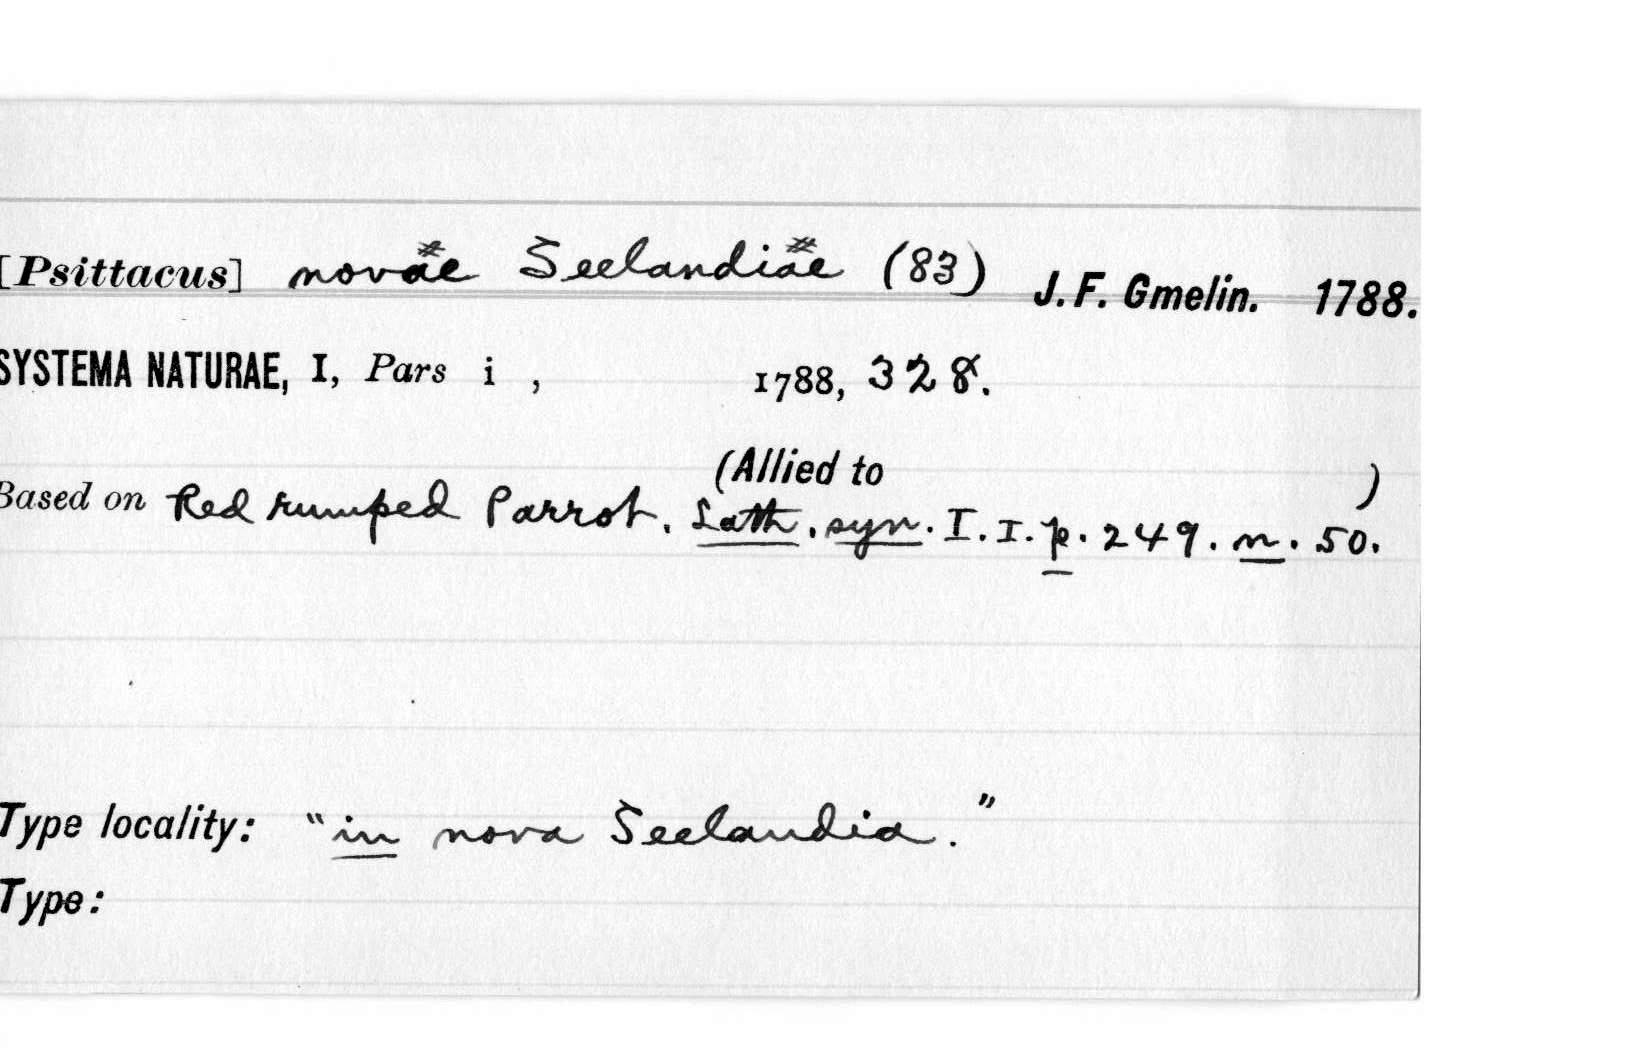 [Psittacus] novae Seelandiae (83) J. F. Gmelin. 1788.
SYSTEMA NATURAE, I, Pars i , 1788, 328.
(Allied to )
Based on Red rumped Parrot. Lath. syn. I. I. p. 249. n. 50.
Type locality: "in nova Seelandia."
Type: